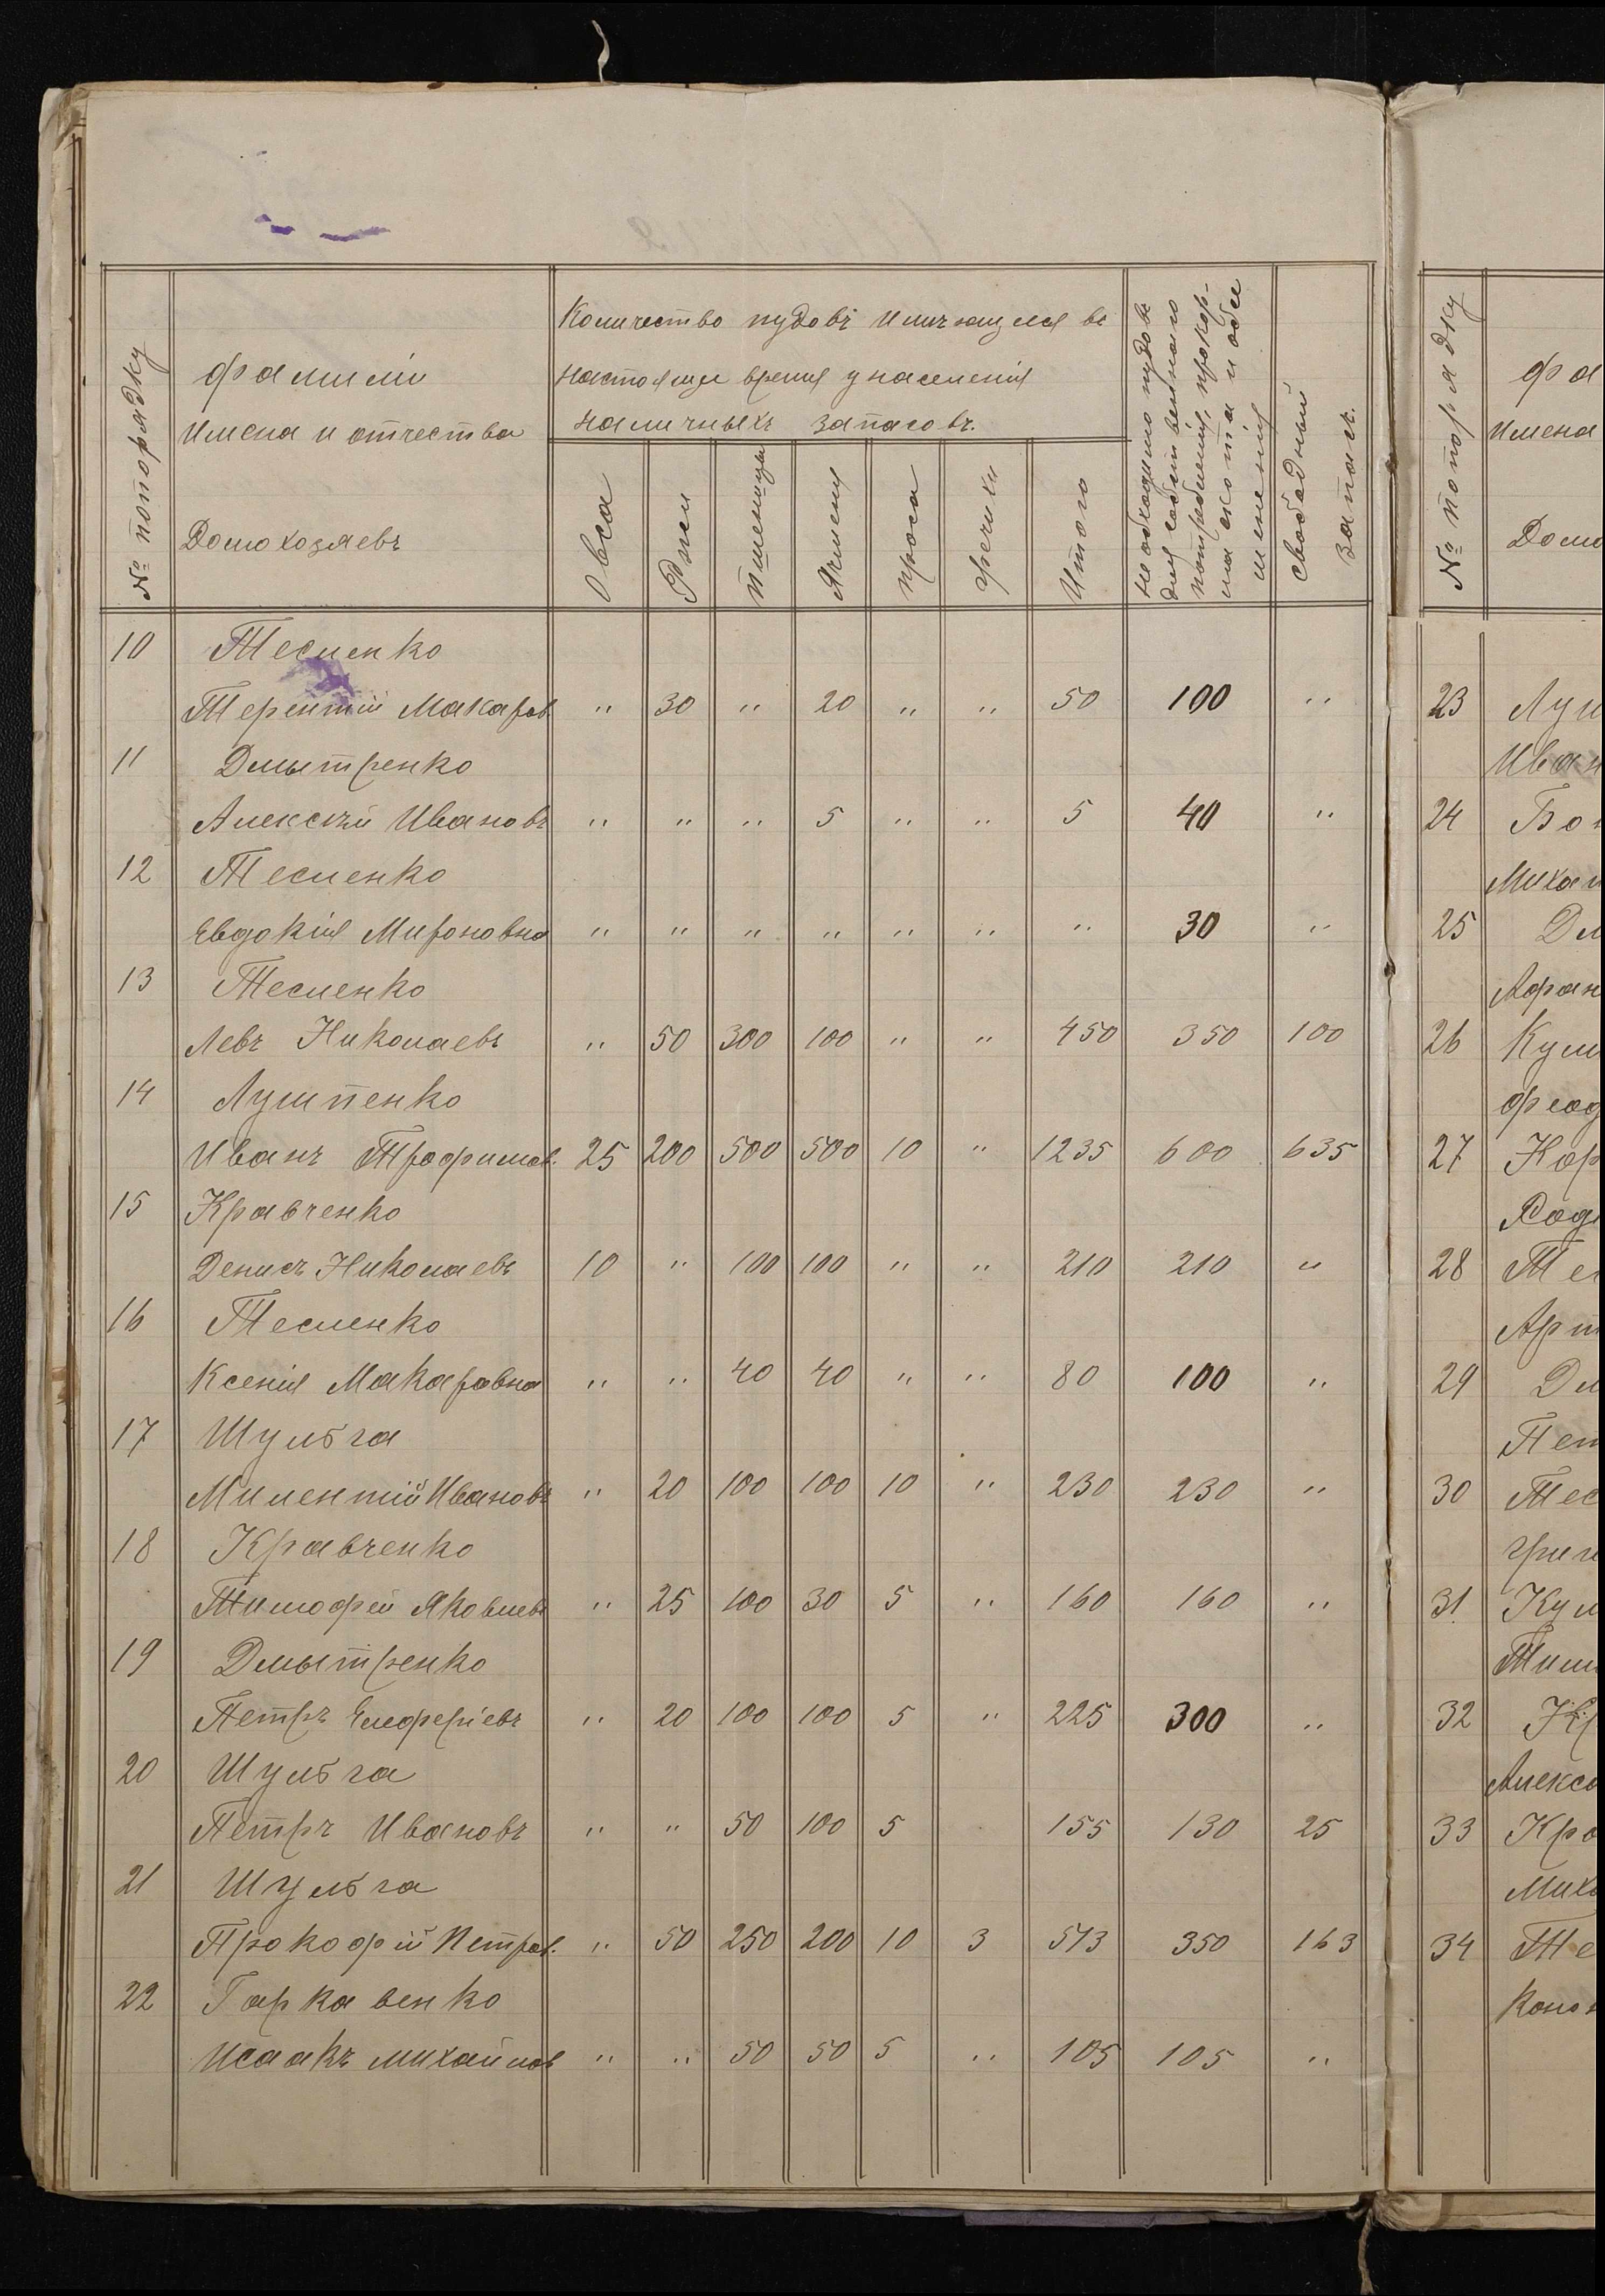 № по порядку
Фамиліи
Имена и отчества
Домохозяевъ
Количество пудовъ имѣющихся въ
настоящее время у населенія
наличныхъ запасовъ.
Овса
Ржи
Пшеницы
Ячменя
проса
гречихи
Итого
Необходимо пудовъ
для собственнаго
потребленія, прокор-
ма скота и обсе
мененія
Свободный
запасъ.
10 Тесленко
Терентій Макаров. " 30 " 20 " " 50 100 "
11 Дмытренко
Алексѣй Ивановъ " " " 5 " " 5 40 "
12 Тесленко
Евдокія Мироновна " " " " " " " 30 "
13 Тесленко
Левъ Николаевъ " 50 300 100 " " 450 350 100
14 Лушпенко
Иванъ Трофимов. 25 200 500 500 10 " 1235 600 635
15 Кравченко
Денисъ Николаевъ 10 " 100 100 " " 210 210 "
16 Тесленко
Ксенія Макаровна " " 40 40 " " 80 100 "
17 Шульга
Милентій Ивановъ " 20 100 100 10 " 230 230 "
18 Кравченко
Тимофей Яковлевъ " 25 100 30 5 " 160 160 "
19 Дмытренко
Петръ Елеферіевъ " 20 100 100 5 " 225 300 "
20 Шульга
Петръ Ивановъ " " 50 100 5 155 130 25
21 Шульга
Прокофій Петров. " 50 250 200 10 3 513 350 163
22 Гаркавенко
Исаакъ Михайлов " " 50 50 5 " 105 105 "
№ по порядку
Фа
Имена
Домо
23 Луш
Иван
24 Бон
Михаи
25 Дм
Афан
26 Кули
Феод
27 Кор
Роди
28 Тес
Арт
29 Дм
Пет
30 Тес
Григ
31 Кул
Тим
32 Кр
Алекс
33 Кра
Миха
34 Те
Конон